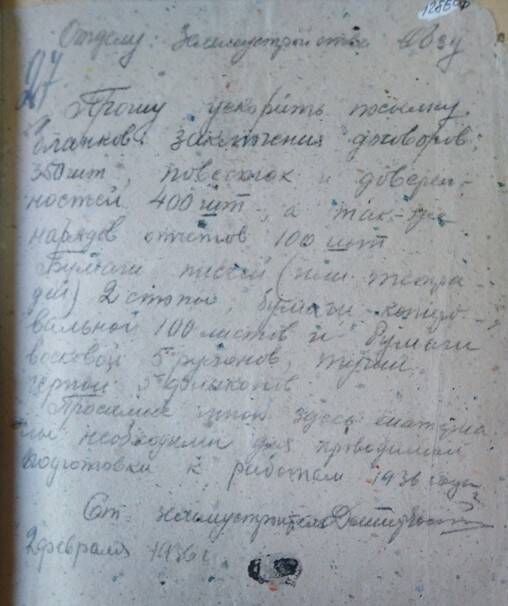 Отделу Землеустройства ОблЗУ
27
Прошу ускорить посылку
бланков: заключения договоров
350 шт, повесток и доверен-
ностей 400 шт, а так-же
нарядов отчетов 100 шт
Бумаги писчей (или тетра-
дей) 2 стопы, бумаги копиро-
вальной 100 листов и бумаги
восковой 5 рулонов, туши
черной 5 флаконов
Просимые мною здесь материа
лы необходимы для проводимой
подготовки к работам 1936 года
Ст. землеустроитель
2 февраля 1936 г.